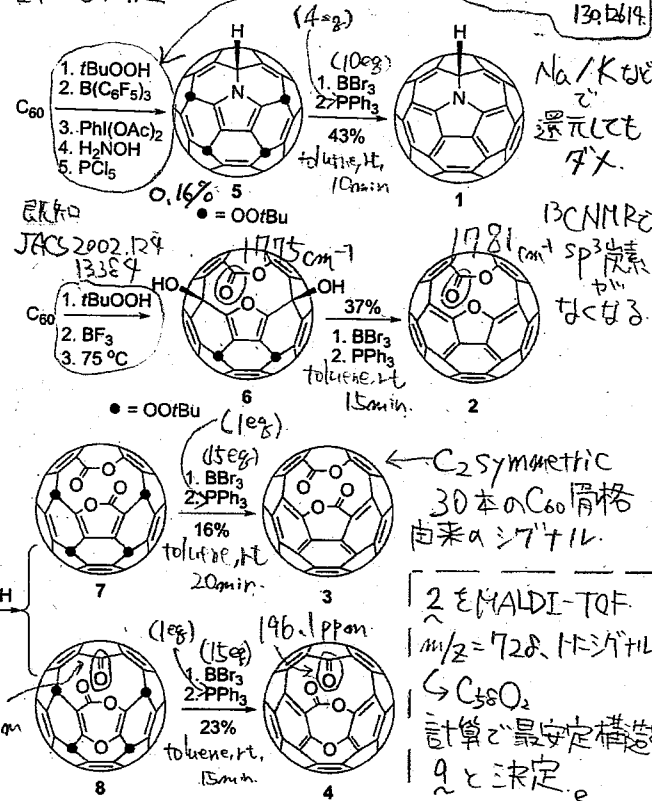 130,12614.
(4eq)
H
H
1. tBuOOH
2. B(C6F5)3
3. PhI(OAc)2
4. H2NOH
5. PCl5
C60
N
5
0.16%
● = OOtBu
(10eq)
1. BBr3
2. PPh3
43%
toluene, rt,
10min
N
1
Na/Kなど
で
還元しても
ダメ.
既知
JACS 2002, 124
13384
C60
1. tBuOOH
2. BF3
3. 75 °C
1775cm-1
HO
OH
O
O
O
6
● = OOtBu
37%
1. BBr3
2. PPh3
toluene, rt
15min.
1781cm-1
O
O
O
2
13CNMRで
sp3炭素
が
なくなる.
O
O
O
O
7
(1eq)
(15eq)
1. BBr3
2. PPh3
16%
toluene, rt
20min.
O
O
O
O
3
←C2 symmetric
30本のC60骨格
由来のシグナル.
H
O
O
O
O
8
(1eq)
(15eq)
1. BBr3
2. PPh3
23%
toluene, rt,
15min.
146.1ppm
O
O
O
O
4
2をMALDI-TOF
m/z=728、にシグナル
↳ C58O2
計算で最安定構造
9と決定.